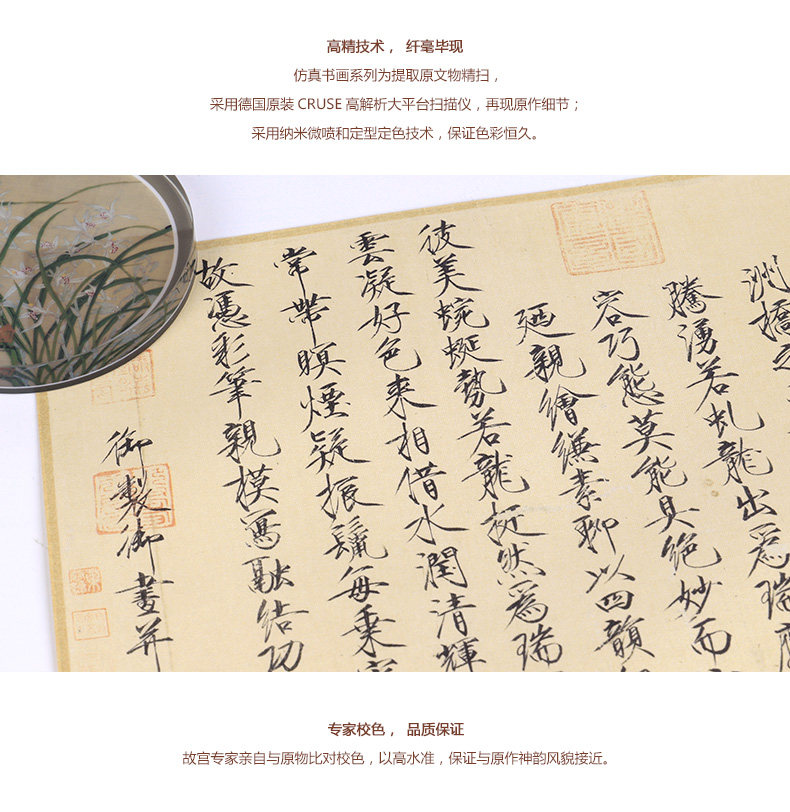 高精技术， 纤毫毕现
仿真书画系列为提取原文物精扫，
采用德国原装 CRUSE 高解析大平台扫描仪，再现原作细节；
采用纳米微喷和定型定色技术，保证色彩恒久。
洲橋之
騰湧若虬龍出爲瑞應
容巧態莫能具絶妙而
迺親繪縑素聊以四韻
彼美蜿蜒勢若龍挺然爲瑞
雲凝好色來相借水潤清輝
常帶暝煙疑振鬣每乘
故憑彩筆親模寫融結功
御製御畫并
专家校色， 品质保证
故宫专家亲自与原物比对校色，以高水准，保证与原作神韵风貌接近。